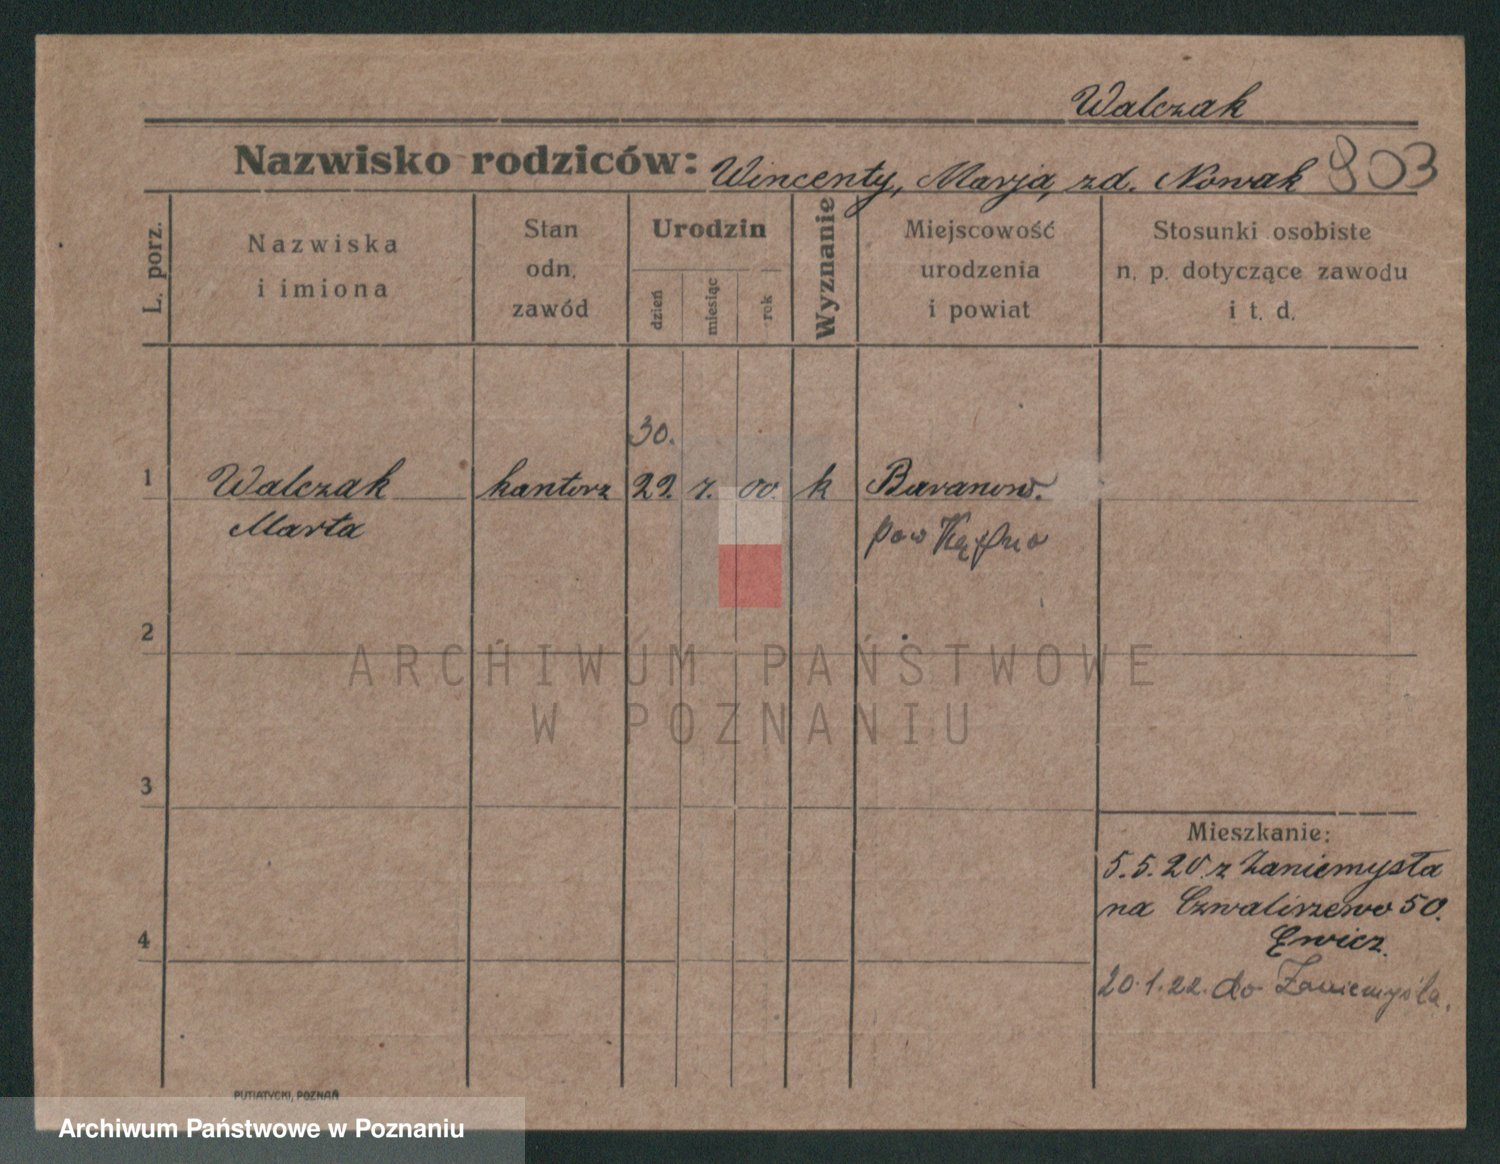 Walczak
Nazwisko rodziców: Wincenty, Marja, zd. Nowak 903
L. porz.
Nazwiska
i imiona
Stan
odn.
zawód
Urodzin
dzień
miesiąc
rok
Wyznanie
Miejscowość
urodzenia
i powiat
Stosunki osobiste
n. p. dotyczące zawodu
i t. d.
30.
1 Walczak kantorz 22. 7. 00. k Baranow.
Marta pow Kępno
2
ARCHIWUM PAŃSTWOWE
W POZNANIU
3
Mieszkanie:
5.5.20. z Zaniemyśla
na Czwalirzewo 50.
4
20.1.22. do Zaniemyśla.
PUTIATYCKI, POZNAŃ
Archiwum Państwowe w Poznaniu